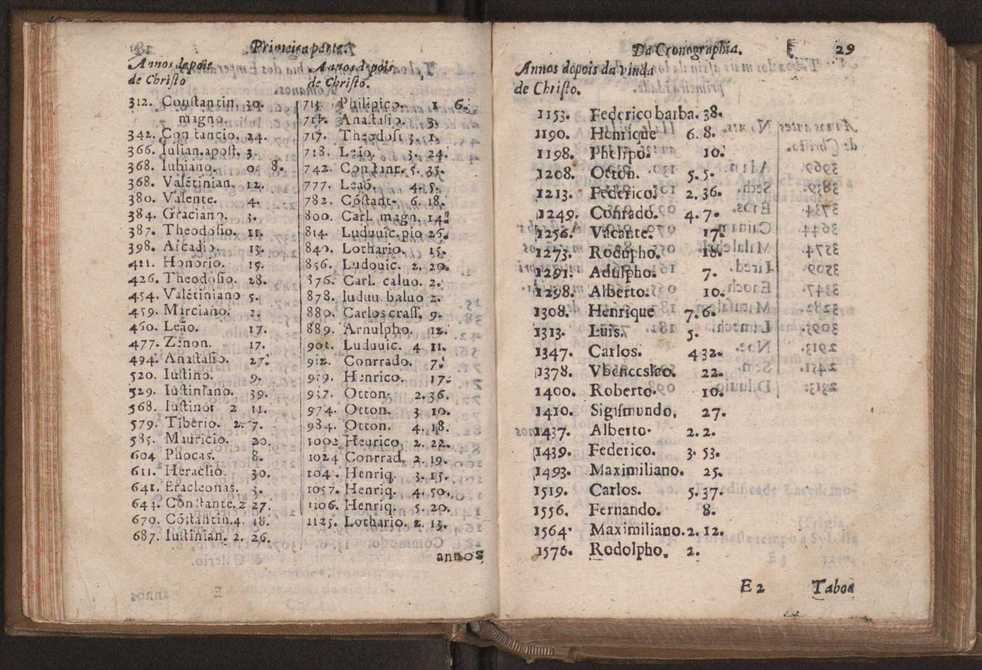 Primeira parte.
Annos depois
de Christo
312. Constantin. 30.
magno.
342. Constancio. 24.
366. Iulian. apost. 3.
368. Iubiano. 0. 8.
368. Valētinian. 12.
380. Valente. 4.
384. Graciano. 3.
387. Theodosio. 11.
398. Arcadio. 13.
411. Honorio. 15.
426. Theodosio. 28.
454. Valētiniano 5.
459. Mirciano. 1.
460. Leão. 17.
477. Zenon. 17.
494. Anastasio. 27.
520. Iustino. 9.
529. Iustiniano. 39.
568. Iustinor 2 11.
579. Tiberio. 2. 7.
585. Mauricio. 20.
604 Phocas. 8.
611. Heraclio. 30.
641. Eracleonas. 3.
643. Constante. 2 27.
670. Cōstātin. 4. 18.
687. Iustinian. 2. 26.
Annos depois
de Christo.
Philipico. 1 6.
Anastasio. 3.
717. Theodosi 3. 1.
718. Leão. 3. 24.
742. Constant. 5. 35.
777. Leaõ. 4. 5.
782. Cōstant. 6. 18.
800. Carl. magn. 14.
814. Luduuic. pio 26.
840. Lothario. 15.
856. Ludouic. 2. 20.
876. Carl. caluo. 2.
878. luduu. baluo 2.
880. Carlos crass. 9.
889. Arnulpho. 12.
901. Luduuic. 4 11.
912. Conrrado. 7.
919. Henrico. 17.
937. Otton. 2. 36.
974. Otton. 3 10.
984. Otton. 4. 18.
1002 Heurico. 2. 22.
1024 Conrrad. 2. 19.
104. Henriq. 3. 15.
1057. Henriq. 4. 50.
1106. Henriq. 5. 20.
1125. Lothario. 2. 13.
annos
Da Cronographia. 29
Annos depois da vinda
de Christo.
1153. Federico barba. 38.
1190. Henrique 6. 8.
1198. Phelipo. 10.
1208. Otton. 5. 5.
1213. Federico. 2. 36.
1249. Conrado. 4. 7.
1256. Vacante. 17.
1273. Rodolpho. 18.
1291. Adulpho. 7.
1298. Alberto. 10.
1308. Henrique 7. 6.
1313. Luis. 5.
1347. Carlos. 4 32.
1378. Vbenceslao. 22.
1400. Roberto. 10.
1410. Sigismundo. 27.
1437. Alberto. 2. 2.
1439. Federico. 3. 53.
1493. Maximiliano. 25.
1519. Carlos. 5. 37.
1556. Fernando. 8.
1564. Maximiliano. 2. 12.
1576. Rodolpho. 2.
E 2 Taboa